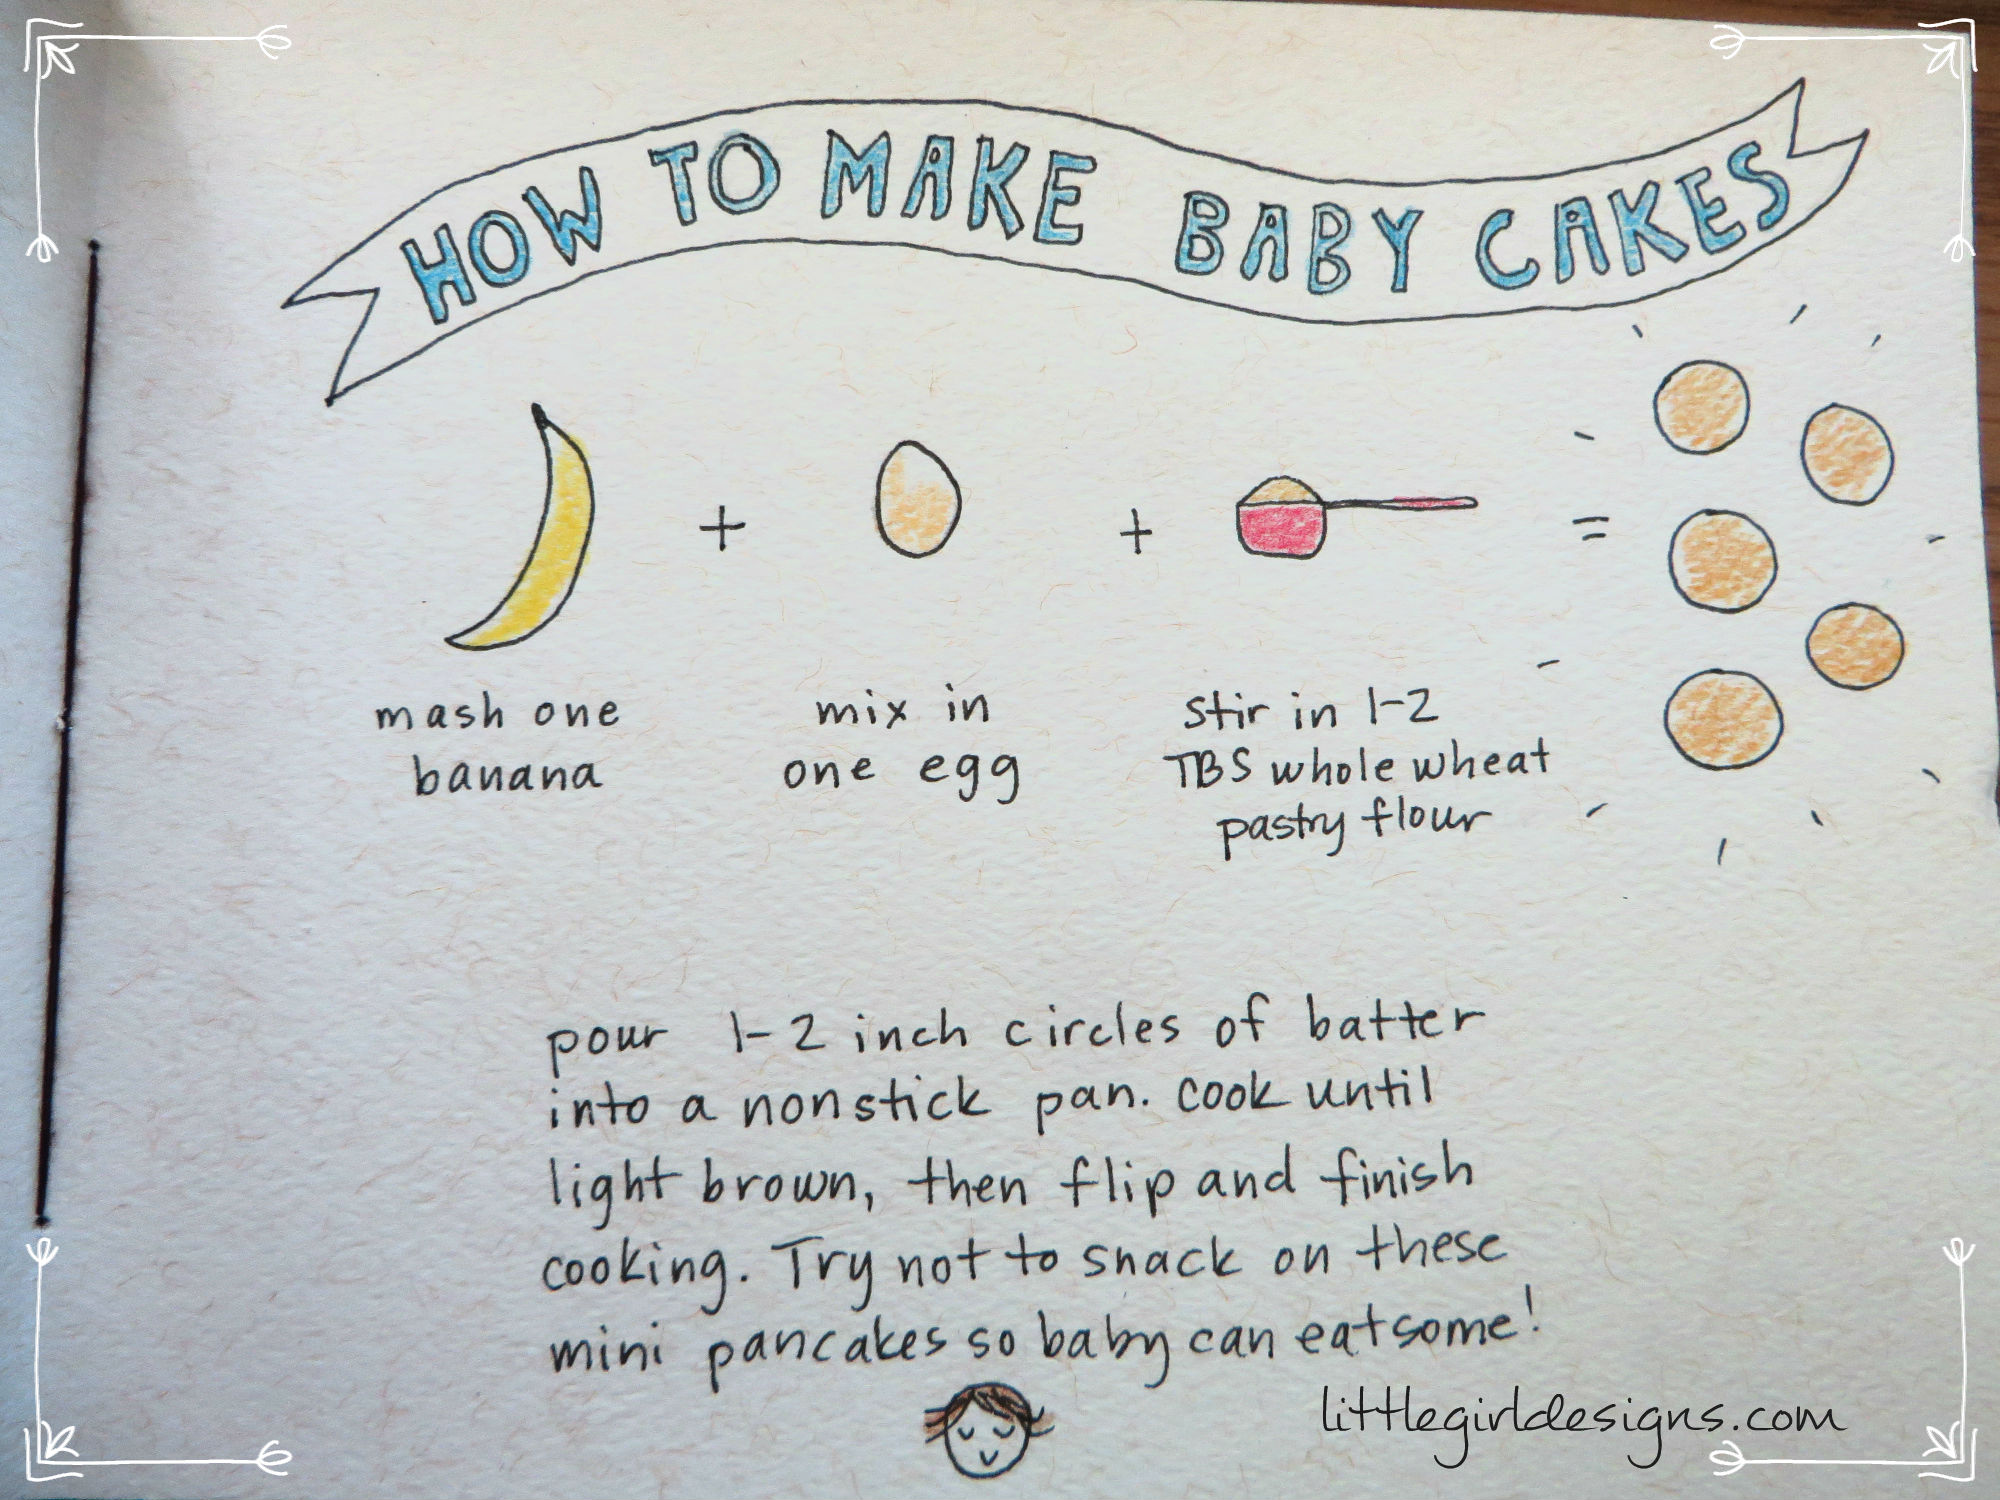 HOW TO MAKE BABY CAKES
+ + =
mash one
banana
mix in
one egg
stir in 1-2
TBS whole wheat
pastry flour
pour 1-2 inch circles of batter
into a nonstick pan. cook until
light brown, then flip and finish
cooking. Try not to snack on these
mini pancakes so baby can eat some!
littlegirldesigns.com